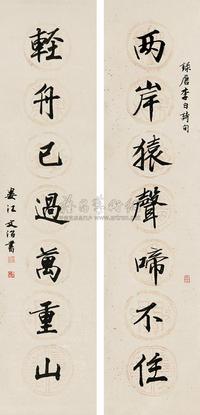 錄唐李白詩句
两岸猿聲啼不住
軽舟已過萬重山
婁江文治書